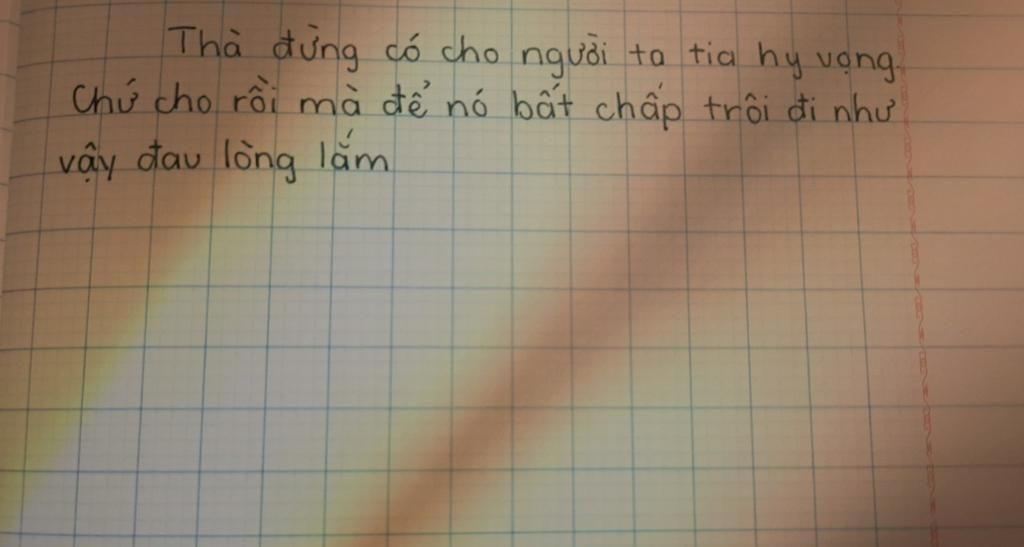 Thà đừng có cho người ta tia hy vọng.
Chứ cho rồi mà để nó bất chấp trôi đi như
vậy đau lòng lắm